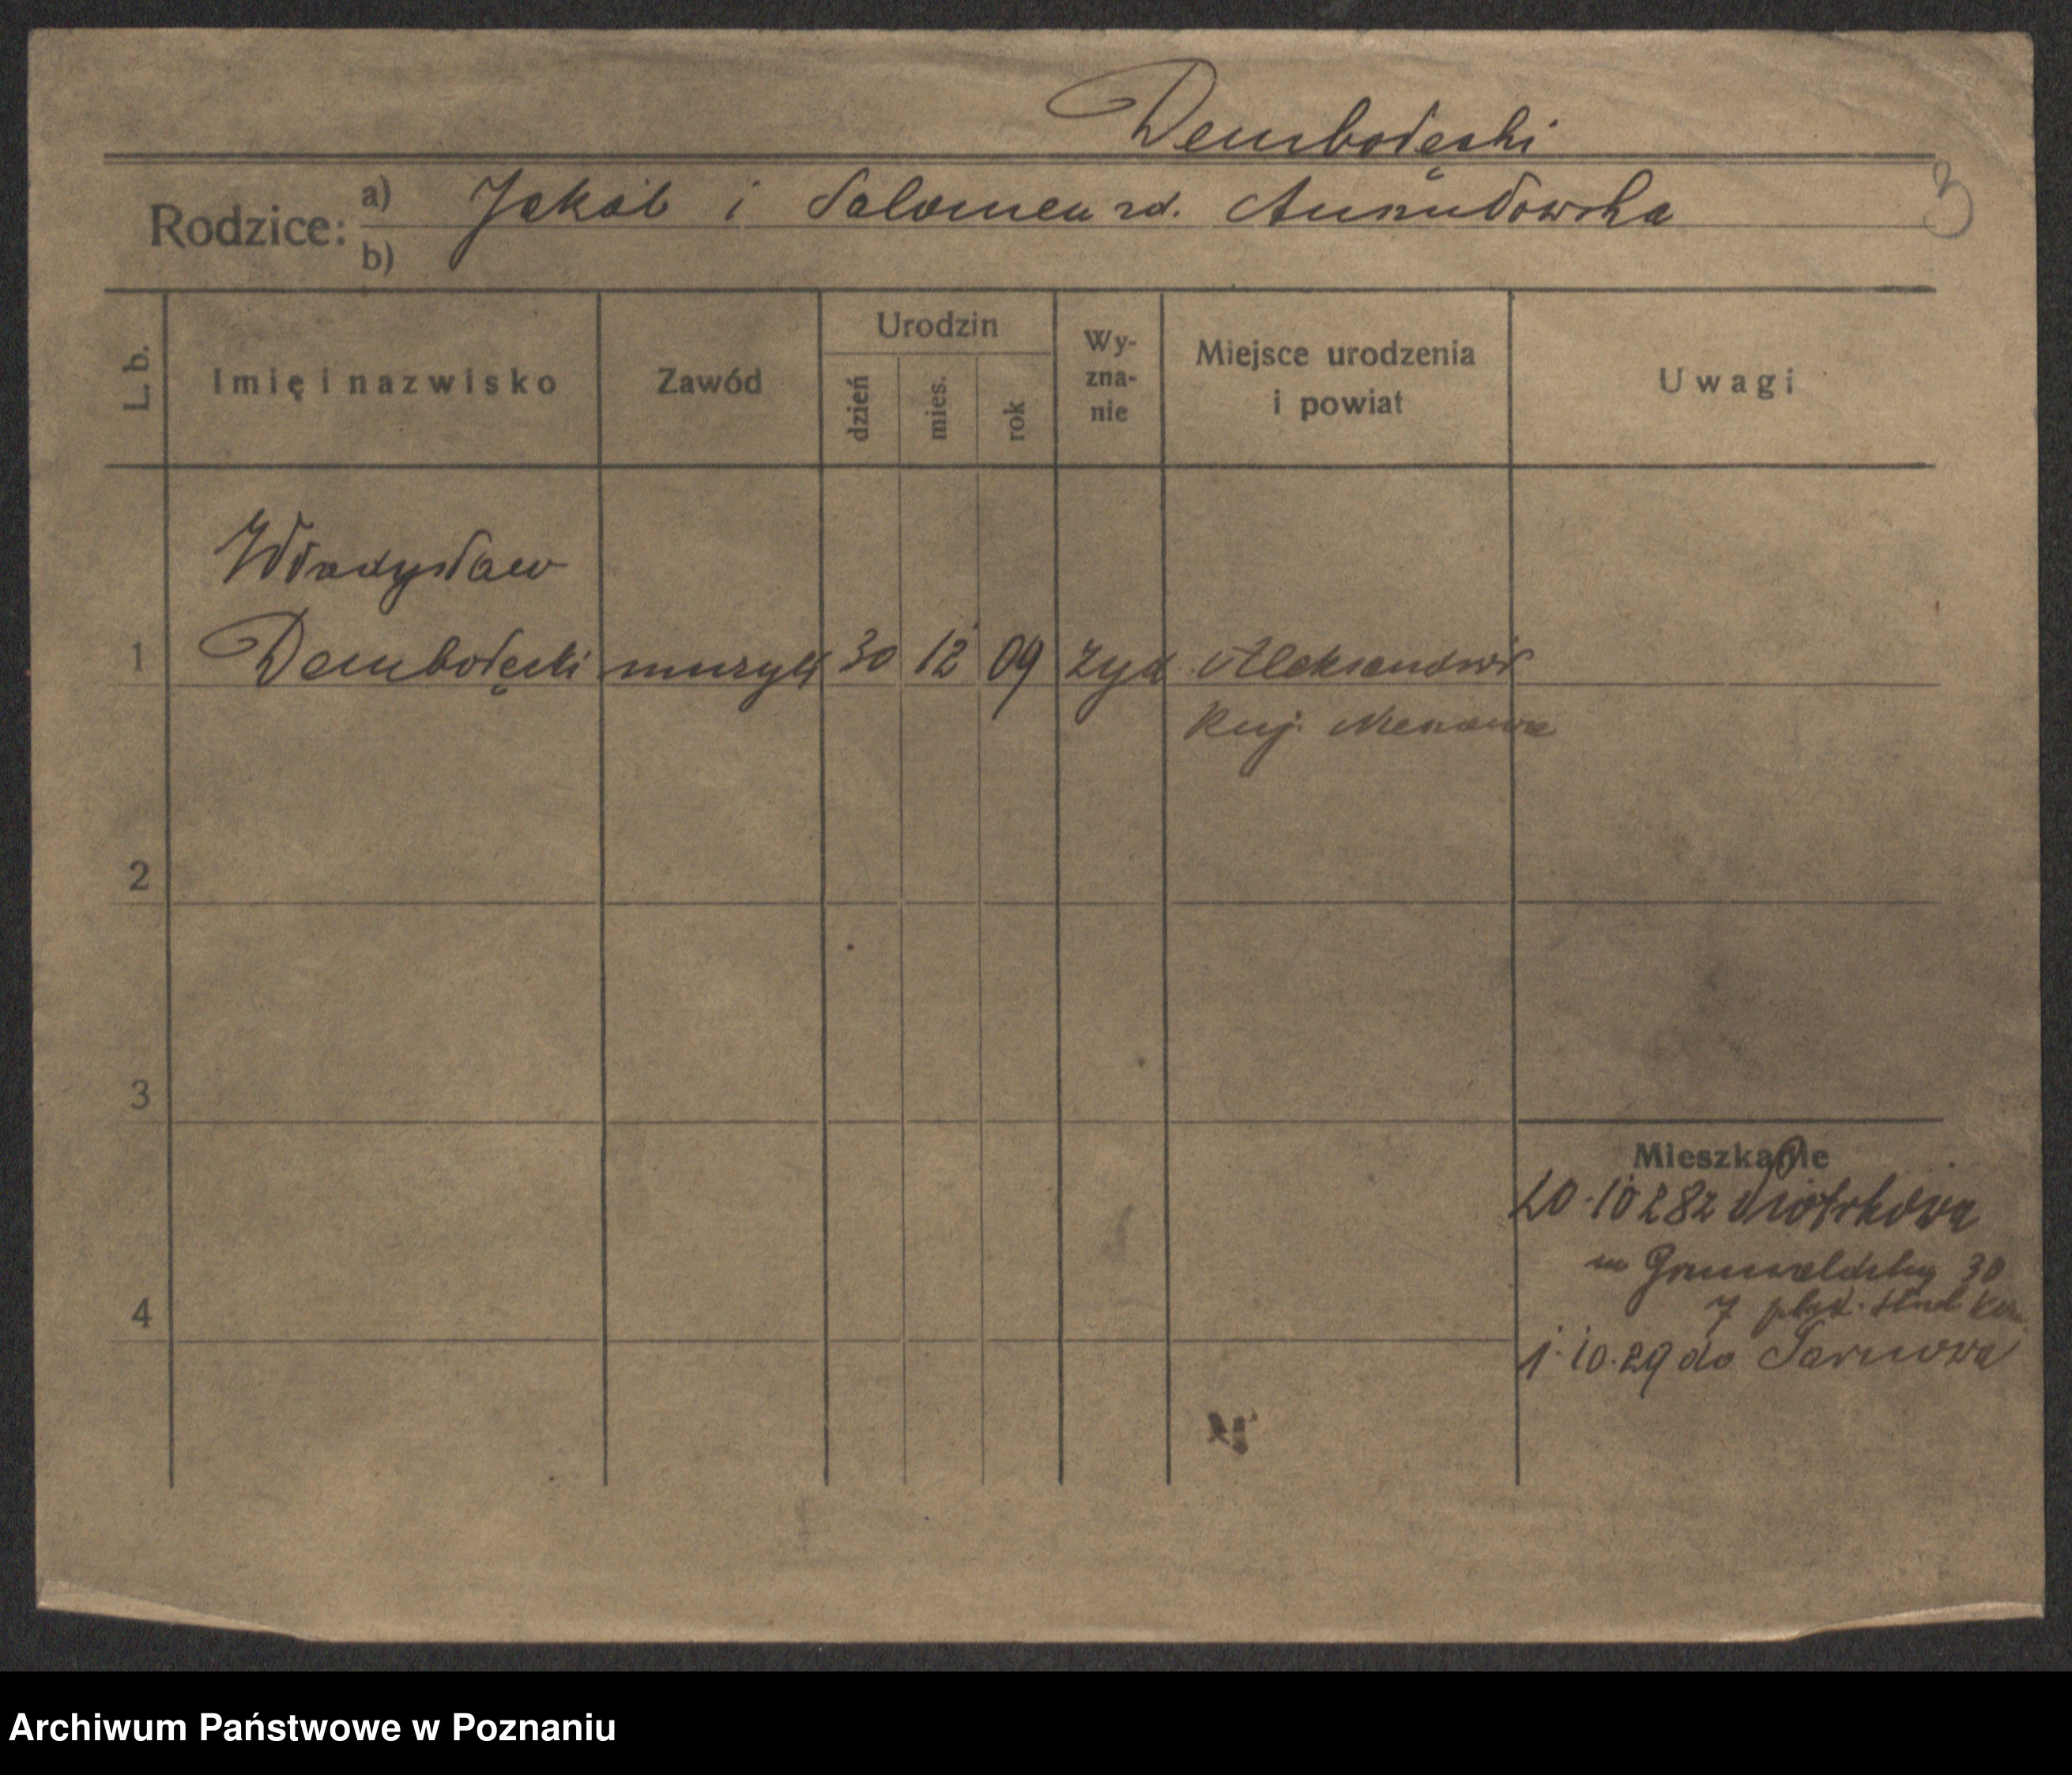 Dembołęcki
3
Rodzice: a) Jakób i Salomea zd.
b)
L. b. Imię i nazwisko Zawód Urodzin dzień mies. rok Wyznanie Miejsce urodzenia i powiat Uwagi
Władysław
1 Dembołęcki muzyk 30 12 09 żyd Aleksandrów
Kuj. Nieszawa
2
3
Mieszkanie
20.10 28 z Piotrkowa
m Grunwaldzka 30
7
4
1.10.29 do Tarnowa
Archiwum Państwowe w Poznaniu